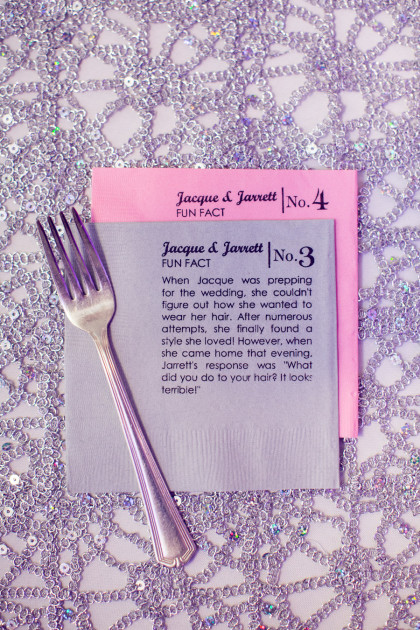 Jacque & Jarrett No. 4
FUN FACT
Jacque & Jarrett No. 3
FUN FACT
When Jacque was prepping
for the wedding, she couldn't
figure out how she wanted to
wear her hair. After numerous
attempts, she finally found a
style she loved! However, when
she came home that evening,
Jarrett's response was "What
did you do to your hair? It looks
terrible!"